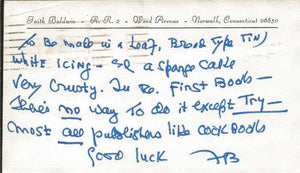 Faith Baldwin - R. R. 2 - Weed Avenue - Norwalk, Connecticut 06850
To be made in a Loaf, Bread Type Tin)
White Icing - a sponge cake
Very Crusty. In re. First Books -
there's no way to do it except Try -
most all publishers like cook books
Good luck FB